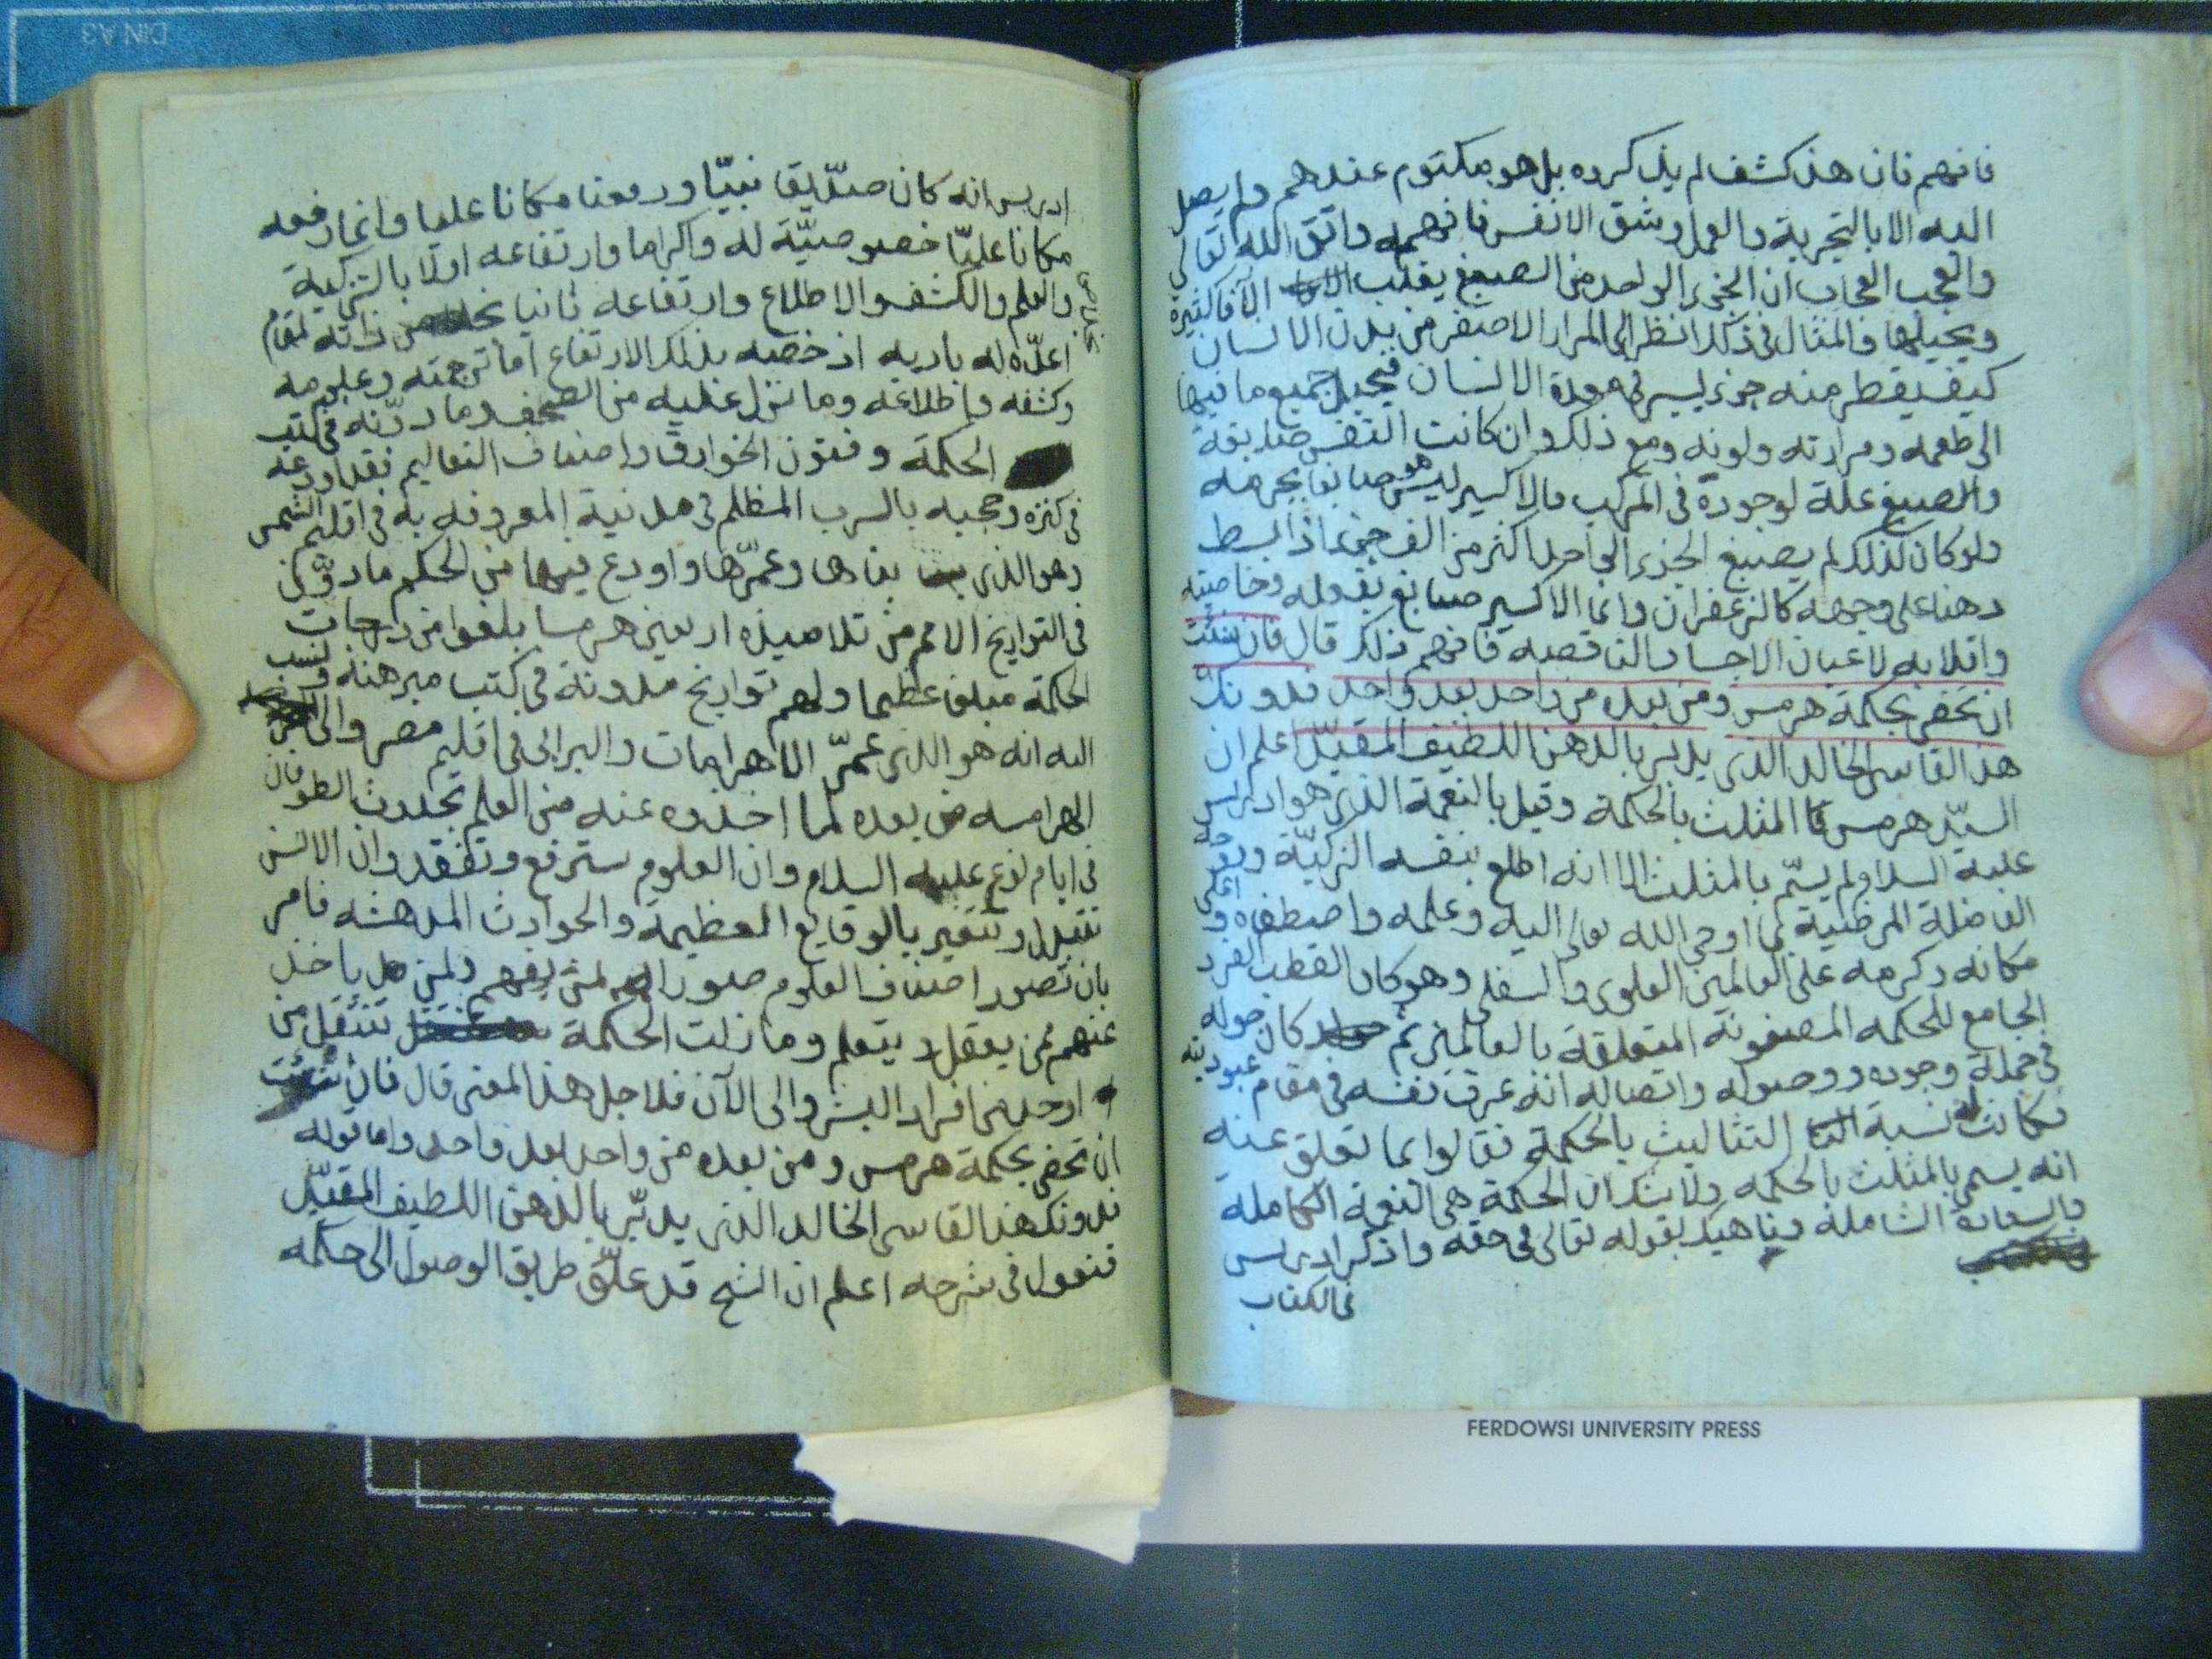 فافهم فان هذ كشف لم يذكروه بل هو مكتوم عندهم ولم يصل
اليه الا بالتجربة والعمل وشق الانفس فافهمه واتق الله تعالى
والعجب العجاب ان الجزء الواحد من الصبغ يقلب الآفا كثيرة
ويحيلها والمثال فى ذكك انظر الى المرار الاصفر من بدن الانسان
كيف يقطر منه جزء يسير فى معدة الانسان فيحيل جميع ما فيها
الى طعمه ومرارته ولونه ومع ذلك وان كانت النفس صابغة
والصبغ علة لوجوده فى المركب فالاكسير ليس هو صابغا بجرمه
ولو كان كذلك لم يصبغ الجزء الواحد اكثر من الف جزء اذا بسط
دهنا على وجهه كالزعفران وانما الاكسير صابغ بقوله وخاصيته
واقلابه لاعيان الاجساد الناقصة فافهم ذلك قال فان شئت
ان تحفى بحكمة هرمس ومن بعده من واحد بعد واحد فدونك
هذ القاسى الخالد الذى يدبر بالدهن اللطيف المقيد اعلم ان
السيد هرمس المثلث بالحكمة وقيل بالنعمة الذى هو ادريس
عليه السلام ولم يسم بالمثلث الا انه اطلع بنفسه الزكية
الفاضلة المرضية لما اوحى الله تعالى اليه وعلمه واصطفاه و اعلى
مكانه وكرمه على العالمين العلوى والسفلى وهو كان القطب الفرد
الجامع للحكمه المصونة المتعلقة بالعالمين ثم كان حوله
فى جملة وجوده ووصوله واتصاله انه عرف نفسه فى مقام عبوديته
فكانت له نسبة التثاليث بالحكمة فقالوا بما تعلق عنه
انه يسمى بالمثلث بالحكمه ولا شك ان الحكمة هى النعمة الكاملة
والسعادة الشاملة وناهيك بقوله تعالى فى حقه واذكر ادريس
فى الكتاب
ادريس انه كان صديقا نبيا ورفعنا مكانا عليا وانما رفعه
مكانا عليا خصوصية له واكراما وارتفاعه اولا بالتزكية
والعلم والكشف والاطلاع وارتفاعه ثانيا بخلاص من ذاته لمقام
اعده له باريه اذ خصه بذلك الارتفاع اما ترجمته وعلومه
وكشفه واطلاعه وما نزل عليه من الصحف وما دونه فى كتب
الحكمة وفنون الخوارق واصناف التعاليم فقد اودعه
فى كنزه وحجبه بالسرب المظلم فى مدنية المعروفه به فى اقليم الشمس
وهو الذى بناها وعمرها واودع فيها من الحكم ما دون
فى التواريخ الامم من تلاميذه اربعين هرمسا بلغوا من درجات
الحكمة مبلغا عظيما ولهم تواريخ مدونة فى كتب مبرهنه ونسب
اليه انه هو الذى عمر الاهرامات والبرابى فى اقليم مصر والى
الهرامسه من بعده لما اخذوه عنه من العلم بحدوث الطوفان
فى ايام نوح عليه السلام وان العلوم سترفع وتفقد وان الالسن
تتبدل وتتغير بالوقايع العظيمة والحوادث المدهشه فامر
بان تصور اصناف العلوم صورا لمن يفهم ولمن ياخذ
عنهم ممن يعقل ويتعلم وما زلت الحكمة تنتقل من
اوحد من افراد البشر والى الآن فلاجل هذ المعنى قال فان شئت
ان تحفى بحكمة هرمس ومن بعده من واحد بعد واحد واما قوله
فدونك هذ القاسى الخالد الذى يدبر بالدهن اللطيف المقيد
فنقول فى شرحه اعلم ان الشيخ قد علق طريق الوصول الى حكمه
FERDOWSI UNIVERSITY PRESS
DIN A3